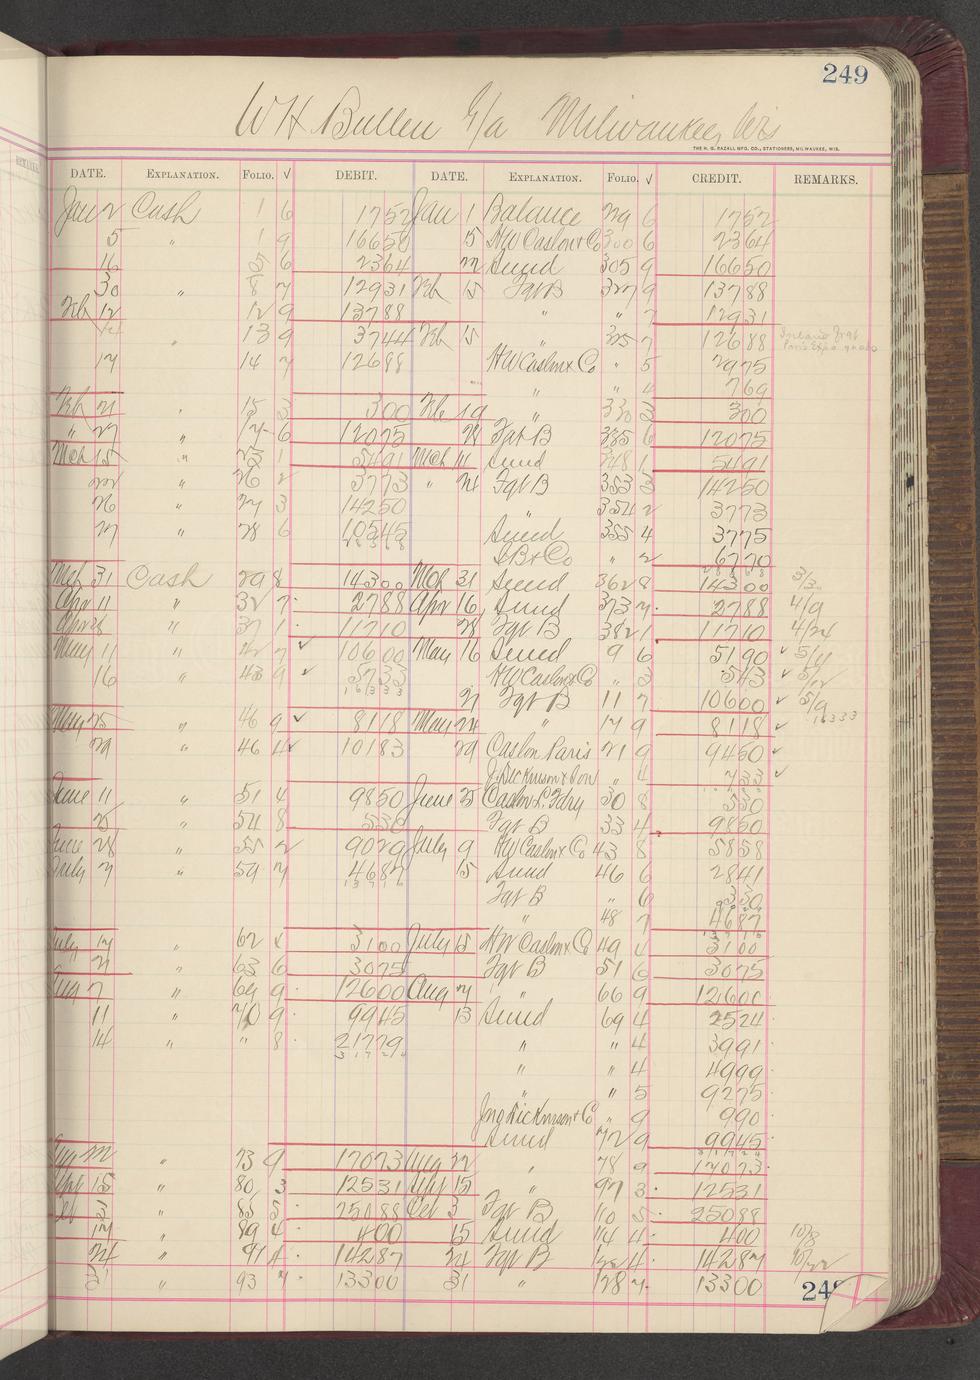 249
W H Bullen % a Milwaukee, Wis
THE H. G. RAZALL MFG. CO., STATIONERS, MILWAUKEE, WIS.
DATE. EXPLANATION. FOLIO. √ DEBIT. DATE. EXPLANATION. FOLIO. √ CREDIT. REMARKS.
Jan 2 Cash 1 6 1752 Jan 1 Balance 29 6 1752
5 " 1 9 16650 15 HW Caslon & Co 300 6 2364
16 6 2364 22 Sund 305 9 16650
30 " 8 7 12931 Feb 15 Fgt B 327 9 13788
Feb 12 12 9 13788 " " 7 12931
" 13 9 3744 Feb 15 " 325 7 12688
17 14 7 12688 HW Caslon & Co " 5 2975
" " 4 769
Feb 21 " 15 3 300 Feb 19 " 330 3 300
" 27 " 6 12075 28 Fgt B 335 6 12075
Mch 15 " 25 1 5491 Mch 11 Sund 348 1 5491
22 " 26 2 3773 " 24 Fgt B 353 3 14250
26 " 27 3 14250 " 354 2 3773
27 " 28 6 10545 Sund 355 4 3775
B & Co " 2 6770
Mch 31 Cash 29 8 14300 Mch 31 Sund 362 8 14300 3/3
Apr 11 " 32 7 2788 Apr 16 Sund 373 7 2788 4/9
Apr 28 " 37 1 11710 28 Fgt B 382 1 11710 4/24
May 11 " 42 7 √ 10600 May 16 Sund 9 6 5190 √ 5/4
16 " 43 9 √ 5733 HW Caslon & Co " 3 543 √ 5/12
16333 21 Fgt B 11 7 10600 √ 5/9
May 25 " 46 9 √ 8118 May 24 " 17 9 8118 √ 16333
29 " 46 4 √ 10183 29 Caslon Paris 21 9 9450 √
J. Dickinson & Son " 4 733 √
June 11 " 51 4 9850 June 25 Caslon L. Fdry 30 8 530
25 " 54 8 530 Fgt B 33 4 9850
June 28 " 55 2 9029 July 9 HW Caslon & Co 43 8 5858
July 7 " 59 7 4687 15 Sund 46 6 2841
13716 Fgt B " 6 330
" 48 7 4687
July 17 " 62 4 3100 July 15 HW Caslon & Co 49 4 3100
21 " 63 6 3075 Fgt B 51 6 3075
Aug 7 " 69 9 12600 Aug 7 " 66 9 12600
11 " 70 9 9945 13 Sund 69 4 2524
14 " " 8 21779 " " 4 3991
31724 " " 4 4999
" " 5 9275
Jno Dickinson & Co " 9 990
Sund 72 9 9945
Aug 22 " 73 9 17073 Aug 22 " 78 9 17073
Sept 15 " 80 3 12531 Sept 15 " 97 3 12531
Oct 3 " 85 5 25088 Oct 3 Fgt B 110 5 25088
17 " 89 4 400 15 Sund 114 4 400 10/8
24 " 91 4 14287 24 Fgt B 122 4 14287 10/22
31 " 93 7 13300 31 " 128 7 13300